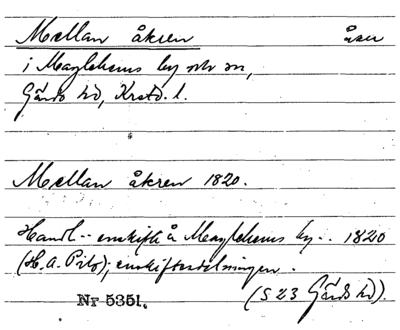 Mellan åkren åker
i Maglehems by och sn,
Gärds hd, Krstd. l.
Mellan åkren 1820.
Handl.. enskifte å Maglehems by.. 1820
(H. A. Pihl); enskiftesdelningen.
(S 23 Gärds hd).
Nr 5351.